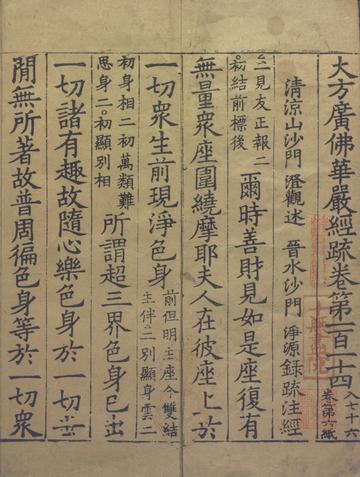 大方廣佛華嚴經䟽卷第一百一十四 入七十六卷第六紙
清凉山沙門 澄觀述 晉水沙門 淨源錄䟽注經
二見友正報二初結前標後 爾時善財見如是座復有
無量衆座圍繞摩耶夫人在彼座上於
一切衆生前現淨色身 前但明主座今雙結主伴二別顯身雲二
初身相二初萬類難思身二初顯別相 所謂超三界色身已出
一切諸有趣故隨心樂色身於一切世
閒無所著故普周徧色身等於一切衆